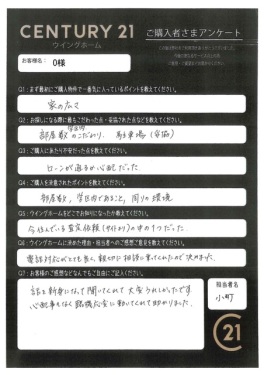 CENTURY 21
ウイングホーム
ご購入者さまアンケート
お客様名: O様
Q1:まず最初にご購入物件で一番気に入っているポイントを教えてください。
家の広さ
Q2:お探しになる際に最もこだわった点・妥協された点などを教えてください。
部屋数 学区内のこだわり、駐車場(妥協)
Q3:ご購入にあたり不安だった点を教えてください。
ローンが通るか心配だった
Q4:ご購入を決意されたポイントを教えてください。
部屋数、学区内であること、周りの環境
Q5:ウイングホームをどこでお知りになったか教えてください。
今住んでいる査定依頼(サイトより)の中の1つだった。
Q6:ウイングホームに決めた理由・担当者へのご感想ご意見を教えてください。
電話対応がとても良く、親切に相談に乗ってくれたので決めました。
Q7:お客様のご感想などなんでもご自由にご記入ください。
話を親身になって聞いてくれて大変うれしかったです
心配事もなく
に動いてくれて助かりました。
担当者名
小町
C21